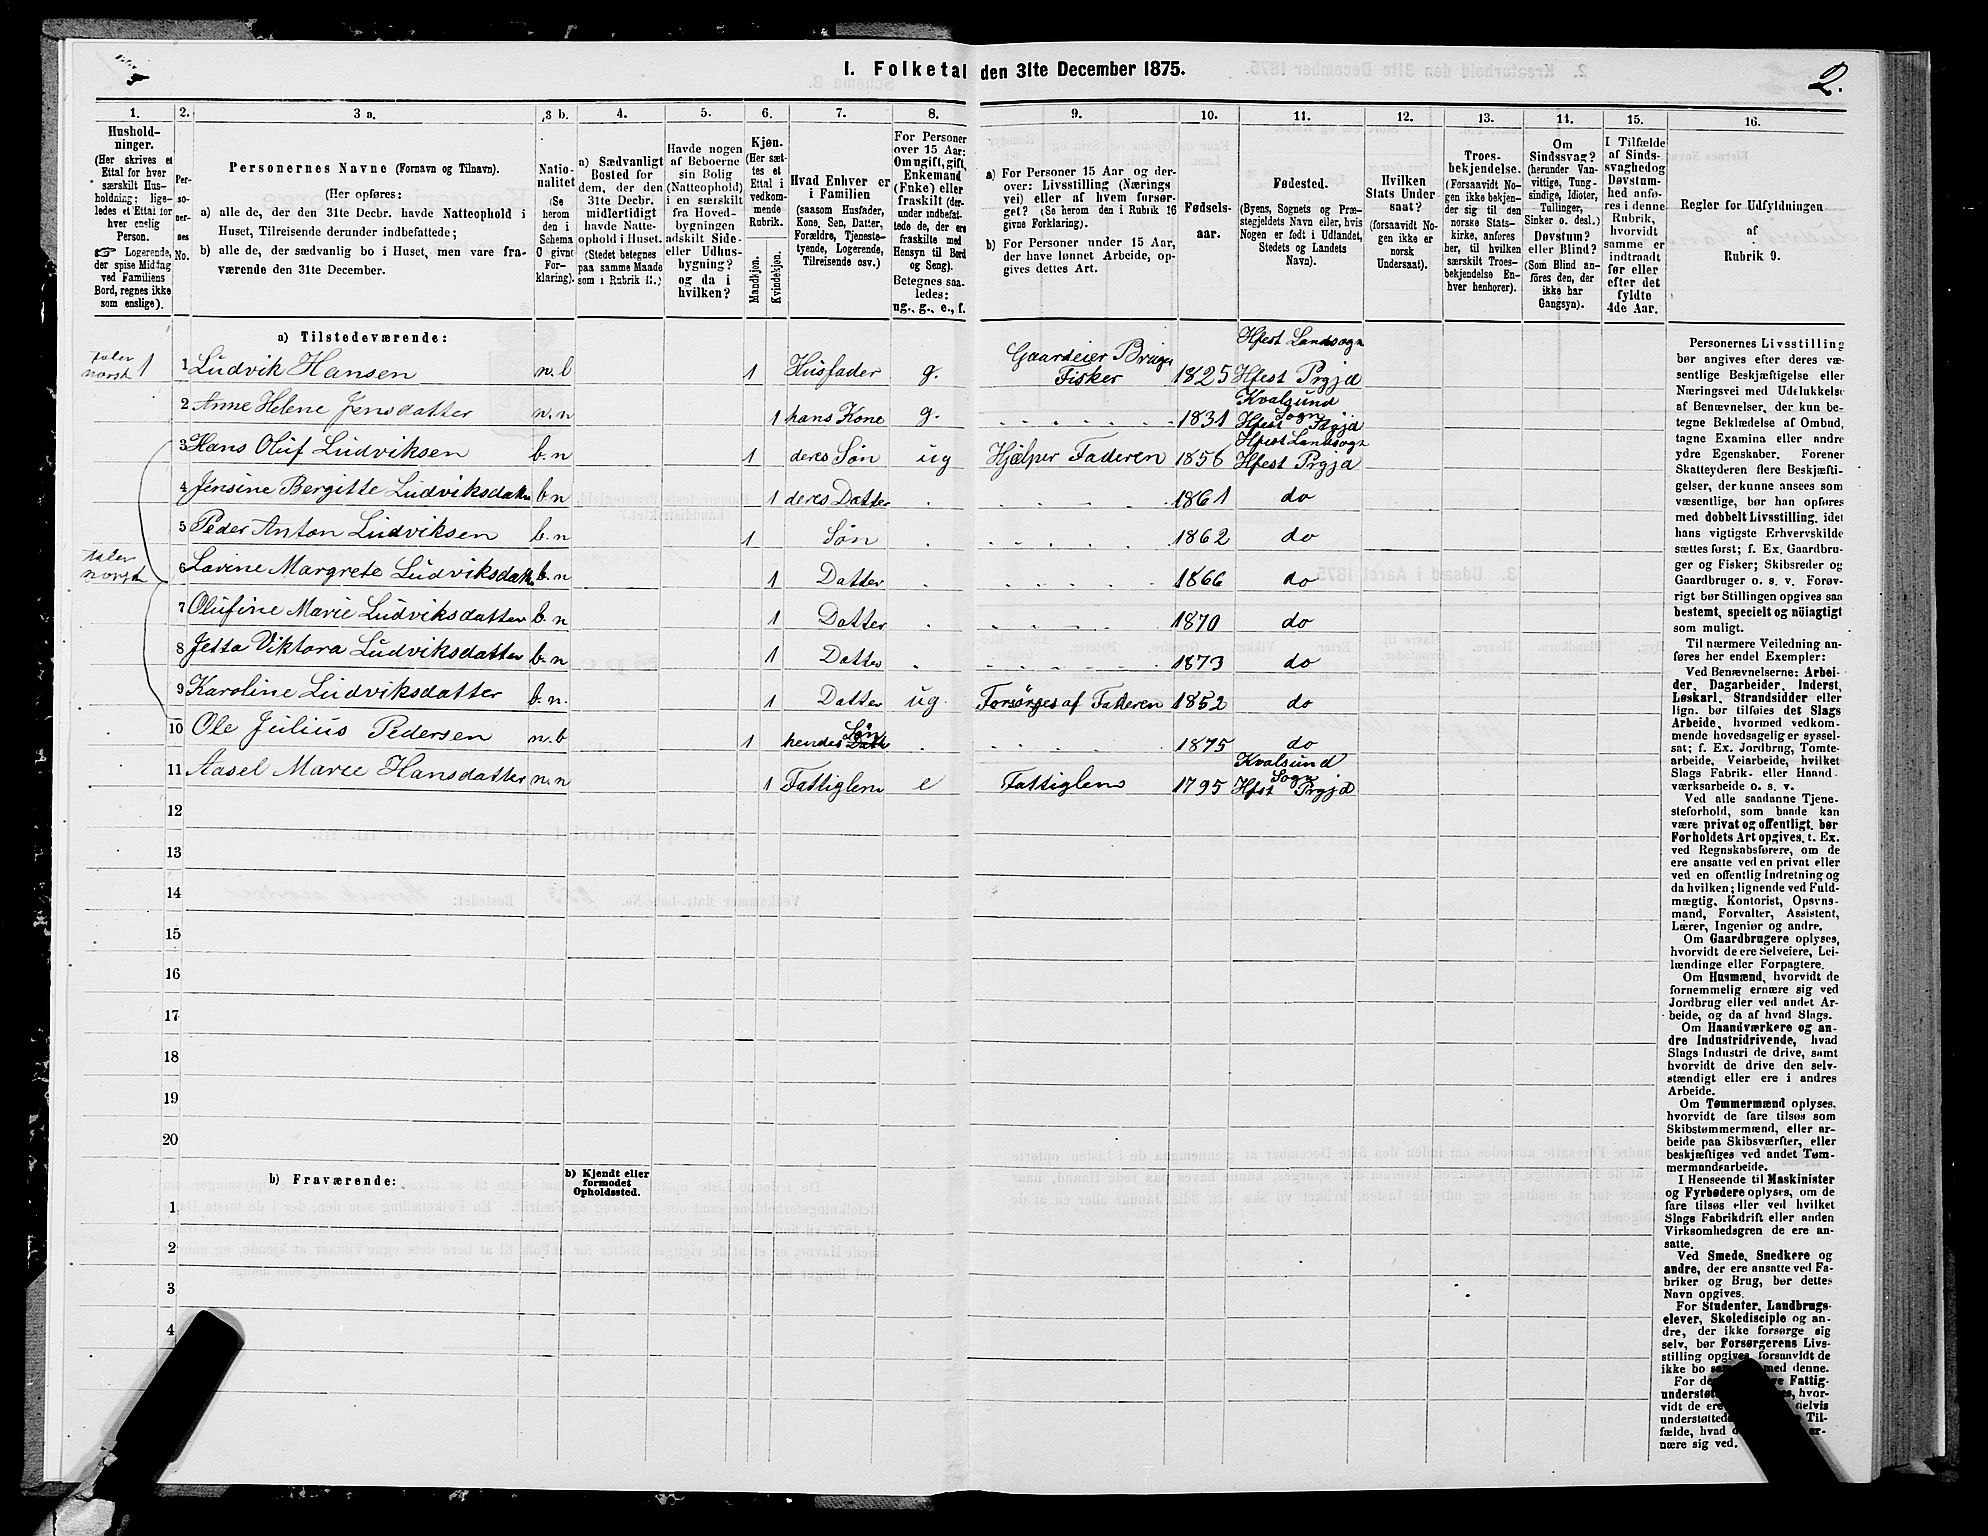 I. Folketal den 31te December 1875.
2.
1.
Hushold-
ninger.
(Her skrives et
Ettal for hver
særskilt Hus-
holdning; lige-
ledes et Ettal for
hver enslig
Person.
☞ Logerende,
der spise Middag
ved Familiens
Bord, regnes ikke
som enslige).
2.
Per-
so-
ner-
nes
No.
3 a.
Personernes Navne (Fornavn og Tilnavn).
(Her opføres:
a) alle de, der den 31te Decbr. havde Natteophold i
Huset, Tilreisende derunder indbefattede;
b) alle de, der sædvanlig bo i Huset, men vare fra-
værende den 31te December.
3 b.
Natio-
nalitet
(Se
herom
den i
Schema
O givne
For-
klaring).
4.
a) Sædvanligt
Bosted for
dem, der den
31te Decbr.
midlertidigt
havde Natte-
ophold i Huset.
(Stedet betegnes
paa samme Maade
som i Rubrik 11.)
5.
Havde nogen
af Beboerne
sin Bolig
(Natteophold)
i en særskilt
fra Hoved-
bygningen
adskilt Side-
eller Udhus-
bygning?
og da i
hvilken?
6.
Kjøn.
(Her sæt-
tes et
Ettal i
vedkom-
mende
Rubrik.
Mandkjøn.
Kvindekjøn.
7.
Hvad Enhver er
i Familien
(saasom Husfader,
Kone, Søn, Datter,
Forældre, Tjeneste-
tyende, Logerende,
Tilreisende osv.)
8.
For Personer
over 15 Aar:
Om ugift, gift,
Enkemand
(Enke) eller
fraskilt (der-
under indbefat-
tede de, der ere
fraskilte med
Hensyn til Bord
og Seng).
Betegnes saa-
ledes:
ug., g., e., f.
9.
a) For Personer 15 Aar og der-
over: Livsstilling (Nærings
vei) eller af hvem forsør-
get? (Se herom den i Rubrik 16
givne Forklaring).
b) For Personer under 15 Aar,
der have lønnet Arbeide, op-
gives dettes Art.
10.
Fødsels-
aar.
11.
Fødested.
(Byens, Sognets og Præ-
stegjeldets Navn eller, hvis
Nogen er født i Udlandet,
Stedets og Landets
Navn).
12.
Hvilken
Stats Under-
saat?
(forsaavidt No-
gen ikke er
norsk
Undersaat).
13.
Troes-
bekjendelse.
(Forsaavidt No-
gen ikke bekjen-
der sig til den
norske Stats-
kirke, anføres
her, til hvilken
særskilt Troes-
bekjendelse En-
hver henhører).
14.
Om
Sindssvag?
(herunder Van-
vittige, Tung-
sindige, Idioter,
Tullinger,
Sinker o. desl.)
Døvstum?
eller Blind?
(Som Blind an-
føres den, der
ikke har
Gangsyn).
15.
I Tilfælde
af Sinds-
svaghed og
Døvstum-
hed anfø-
res i denne
Rubrik,
hvorvidt
samme er
indtraadt
før eller
efter det
fyldte
4de Aar.
16.
Regler for Udfyldningen
af
Rubrik 9.
a) Tilstedeværende:
taler norsk 1 1 Ludvik Hansen n.b 1 Husfader g. Gaardeier Bruger Fisker 1825 Hfest Landsogn Hfest Prgjd
2 Anne Helene Jensdatter n.n 1 hans Kone g. 1831 Kvalsund Sogn Hfest Prgjd
3 Hans Oluf Ludviksen b.n 1 deres Søn ug Hjælper Faderen 1856 Hfest Landsogn Hfest Prgjd
4 Jensine Bergitte Ludviksdatter b.n 1 deres Datter 1861 do
5 Peder Anton Ludviksen b.n 1 Søn 1862 do
taler norsk 6 Lavine Margrete Ludviksdatter b.n 1 Datter 1866 do
7 Olufine Marie Ludviksdatter b.n 1 Datter 1870 do
8 Jetta Viktora Ludviksdatter b.n 1 Datter 1873 do
9 Karoline Ludviksdatter b.n. 1 Datter ug Forsørges af Faderen 1852 do
10 Ole Julius Pedersen n.b 1 hendes Søn 1875 do
11 Aasel Marie Hansdatter n.n 1 Fattiglem e Fattiglem 1795 Kvalsund Sogn Hfest Prgjd
12
13
14
15
16
17
18
19
20
b) Fraværende:
b) Kjendt eller
formodet
Opholdssted.
1
2
3
4
Personernes Livsstilling
bør angives efter deres væ-
sentlige Beskjæftigelse eller
Næringsvei med Udelukkelse
af Benævnelser, der kun be-
tegne Beklædelse af Ombud,
tagne Examina eller andre
ydre Egenskaber. Forener
Skatteyderen flere Beskjæfti-
gelser, der kunne ansees som
væsentlige, bør han opføres
med dobbelt Livsstilling, idet
hans vigtigste Erhvervskilde
sættes først; f. Ex. Gaardbru-
ger og Fisker; Skibsreder og
Gaardbruger o. s. v. Forøv-
rigt bør Stillingen opgives saa
bestemt, specielt og nøiagtigt
som muligt.
Til nærmere Veiledning an-
føres her endel Exempler:
Ved Benævnelserne: Arbei-
der, Dagarbeider, Inderst,
Løskarl, Strandsidder eller
lign. bør tilføies det Slags
Arbeide, hvormed vedkom-
mende hovedsagelig er syssel-
sat; f. Ex. Jordbrug, Tomte-
arbeide, Veiarbeide, hvilket
Slags Fabrik- eller Haand-
værksarbeide o. s. v.
Ved alle saadanne Tjene-
steforhold, som baade kan
være privat og offentligt, bør
Forholdets Art opgives, t. Ex.
ved Regnskabsførere, om de
ere ansatte ved en privat eller
ved en offentlig Indretning og
da hvilken; lignende ved Fuld-
mægtig, Kontorist, Opsyns-
mand, Forvalter, Assistent,
Lærer, Ingeniør og andre.
Om Gaardbrugere oplyses,
hvorvidt de ere Selveiere, Lei-
lændinge eller Forpagtere.
Om Husmænd, hvorvidt de
fornemmelig ernære sig ved
Jordbrug eller ved andet Ar-
beide, og da af hvad Slags.
Om Haandværkere og an-
dre Industridrivende, hvad
Slags Industri de drive, samt
hvorvidt de drive den selv-
stændigt eller ere i andres
Arbeide.
Om Tømmermænd oplyses,
hvorvidt de fare tilsøs som
Skibstømmermænd, eller ar-
beide paa Skibsværfter, eller
beskjæftiges ved andet Tøm-
mermandsarbeide.
I Henseende til Maskinister
og Fyrbødere oplyses, om de
fare tilsøs eller ved hvilket
Slags Fabrikdrift eller anden
Virksomhedsgren de ere an-
satte.
Ved Smede, Snedkere og
andre, der ere ansatte ved Fa-
briker og Brug, bør dettes
Navn opgives.
For Studenter, Landbrugs-
elever, Skoledisciple og an-
dre, der ikke forsørge sig
selv, bør Forsørgerens Livs-
stilling opgives, forsaavidt de
ikke bo med denne.
For de Fattig-
hvor-
vidt de ere delvis
understøttede Til-
fælde, hvad
nære sig ved.